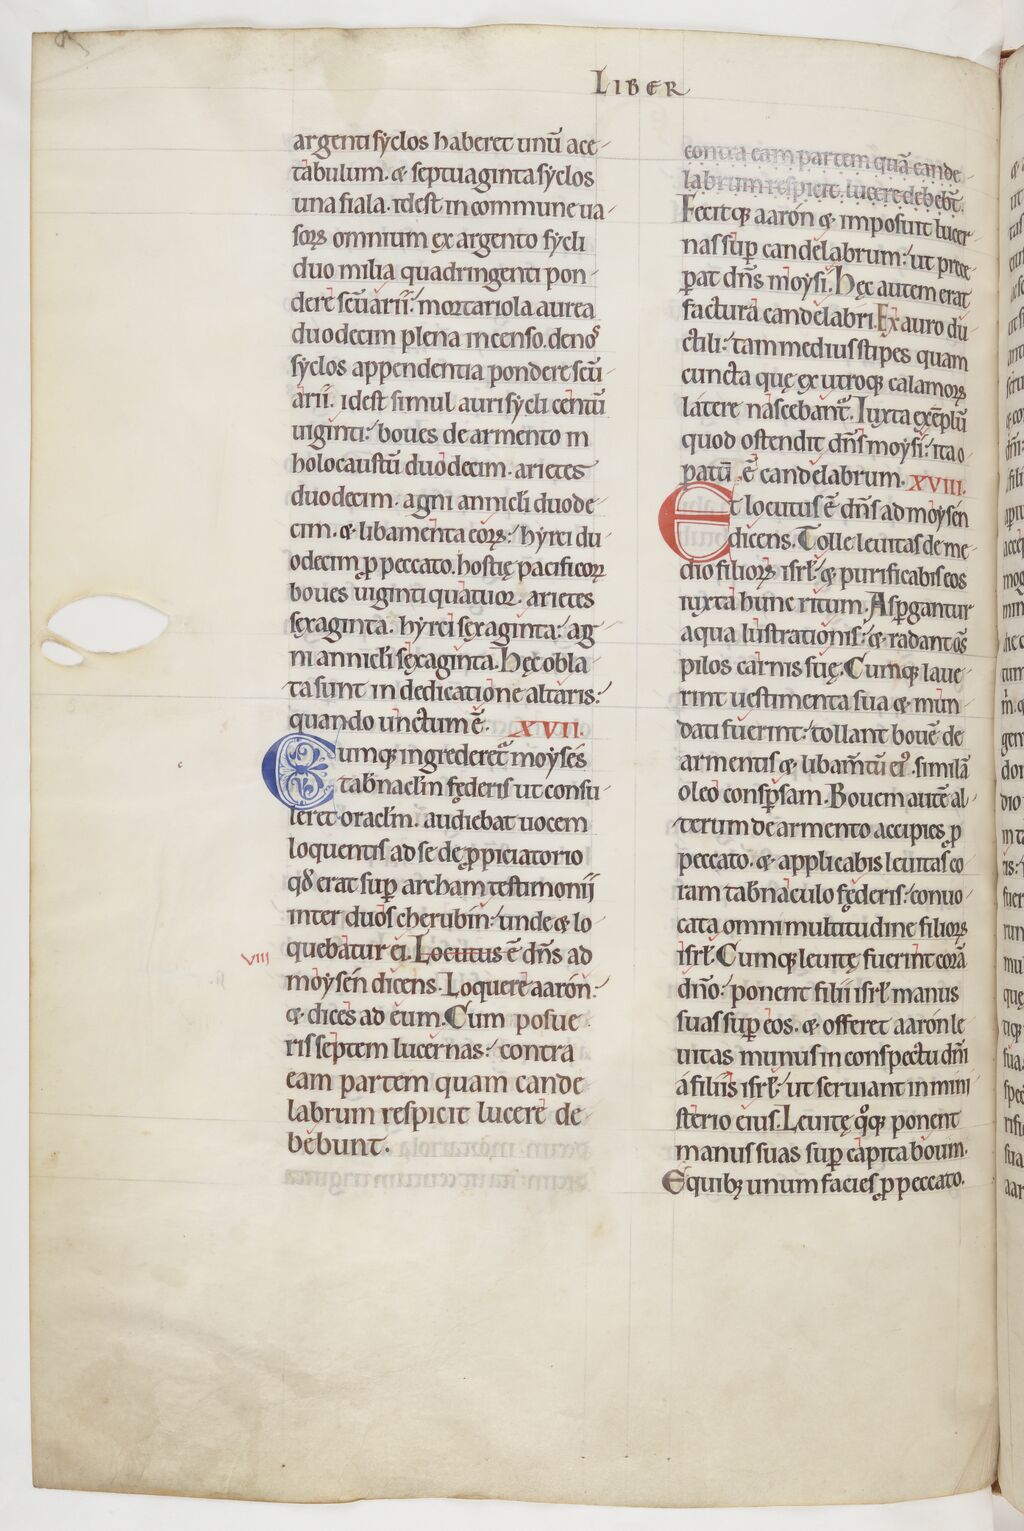 LIBER
argenti syclos haberet unū ace-
tabulum. & septuaginta syclos
una fiala. Idest in commune ua-
soꝝ omnium ex argento sycli
duo milia quadringenti pon-
dere scūarii: mortariola aurea
duodecim plena incenso. denos
syclos appendentia pondere scū-
arii. idest simul auri sycli centū
uiginti: boues de armento in
holocaustū duodecim. arietes
duodecim. agni anniculi duode-
cim. & libamenta eoꝝ: hyrci du-
odecim ꝓ peccato. hostię pacificoꝝ
boues uiginti quatuor. arietes
sexaginta. hyrci sexaginta: ag-
ni anniculi sexaginta. Hęc obla-
ta sunt in dedicatione altaris:
quando unctum ē. XVII.
Cumq; ingrederet᷑ moyses
tab̄nacl̄m fęderis ut consu-
leret oracl̄m. audiebat uocem
loquentis ad se de ꝓpiciatorio
qđ erat sup̄ archam testimonii
inter duos cherubin: unde & lo-
VIII quebatur ei. Locutus ē dn̄s ad
moysen dicens. Loquere aaron:
& dices ad eum. Cum posue-
ris septem lucernas: contra
eam partem quam cande-
labrum respicit lucere de-
bebunt.
contra eam partem quā cande-
labrum respicit lucere debeb̄t.
Fecitq; aaron & imposuit lucer-
nas sup̄ candelabrum: ut prece-
perat dn̄s moysi. Hęc autem erat
factura candelabri. Ex auro du-
ctili: tam medius stipes quam
cuncta quę ex utroq; calamoꝝ
latere nascebant᷑. Iuxta exēplū
quod ostendit dn̄s moysi: ita o-
patū ē candelabrum. XVIII.
Et locutus ē dn̄s ad moysen
dicens. Tolle leuitas de me-
dio filioꝝ isrl̄. & purificabis eos
iuxta hunc ritum. Asp̄gantur
aqua lustrationis: & radant om̄s
pilos carnis suę. Cumq; laue-
rint uestimenta sua & mun-
dati fuerint: tollant bouē de
armentis & libam̄tū ei᷒. similā
oleo consp̄sam. Bouem autē al-
terum de armento accipies ꝓ
peccato. & applicabis leuitas co-
ram tab̄naculo fęderis: conuo-
cata omni multitudine filioꝝ
isrl̄. Cumq; leuitę fuerint corā
dn̄o: ponent filii isrl̄ manus
suas sup̄ eos. & offeret aaron le-
uitas munus in conspectu dn̄i
a filiis isrl̄: ut seruiant in mini-
sterio eius. Leuitę qͦq; ponent
manus suas sup̄ capita boum.
E quibꝫ unum facies ꝓ peccato.